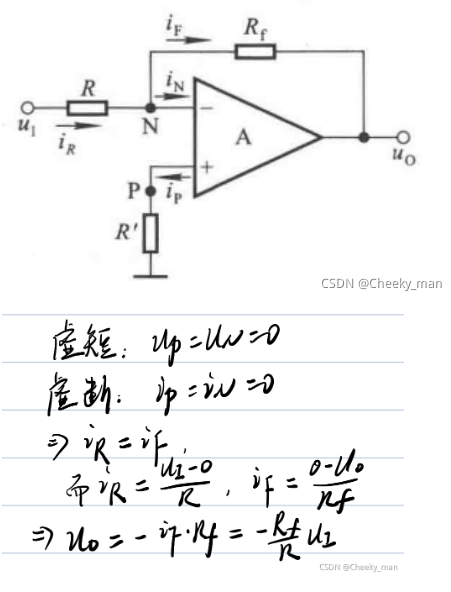 i_F R_f
R i_N
u_I i_R N − A u_O
P i_P +
R'
CSDN @Cheeky_man
虚短: u_P = u_N = 0
虚断: i_P = i_N = 0
⇒ i_R = i_F,
而 i_R = (u_I - 0)/R , i_F = (0 - u_o)/R_f
⇒ u_o = - i_F · R_f = - R_f/R u_I
CSDN @Cheeky_man